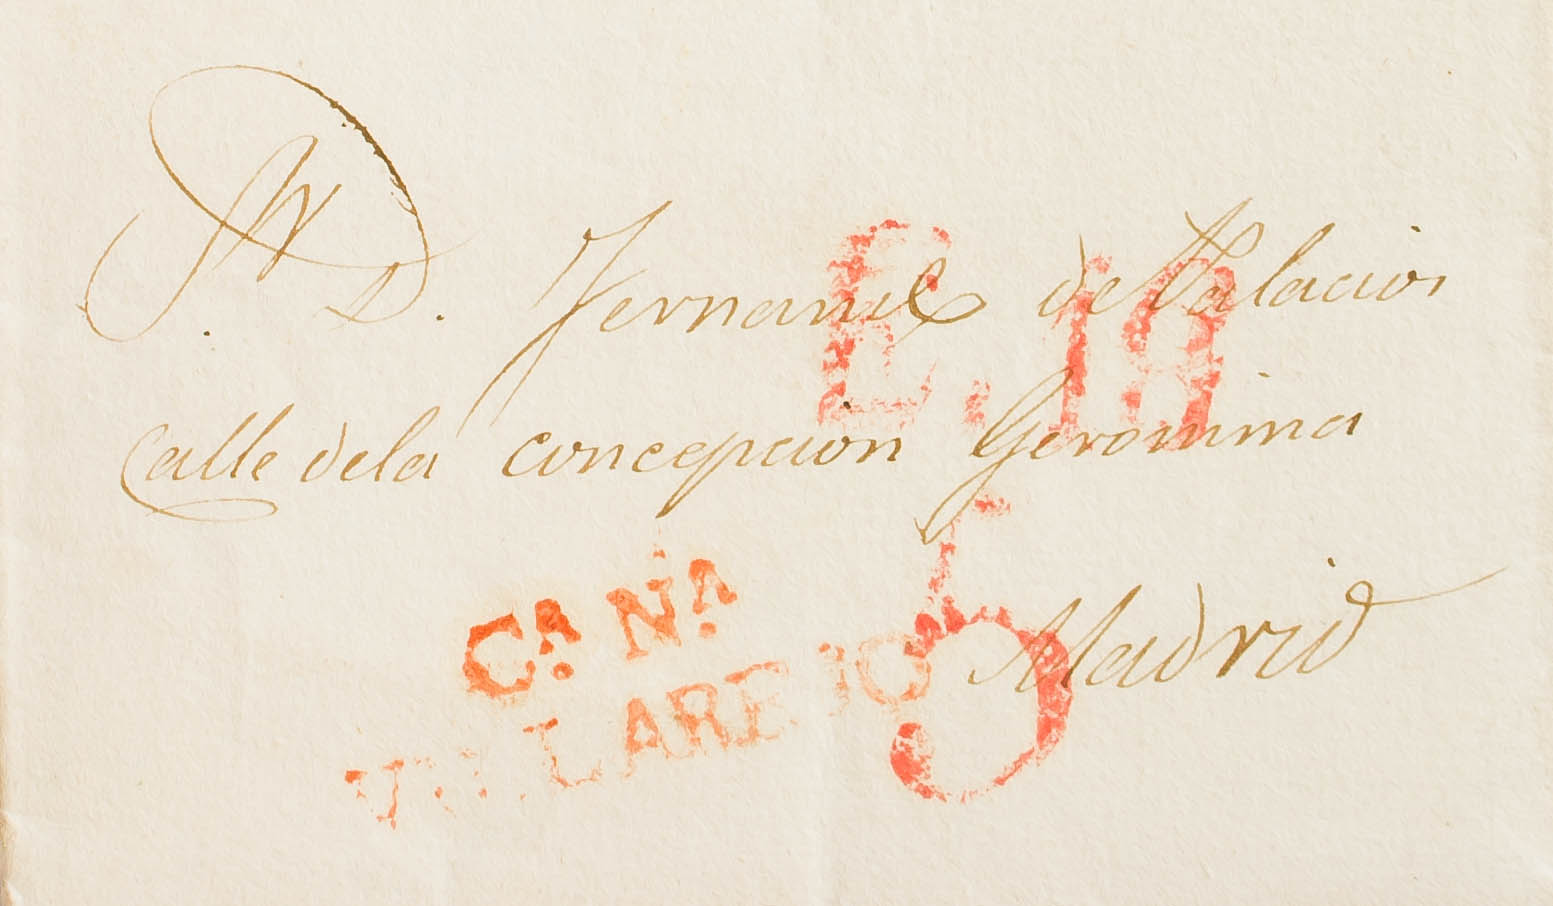 Sr. D. Fernando de Palacios
Calle de la Concepcion Geronima
Madrid
E. 18
5
Cª. Nª.
VILLAREJO